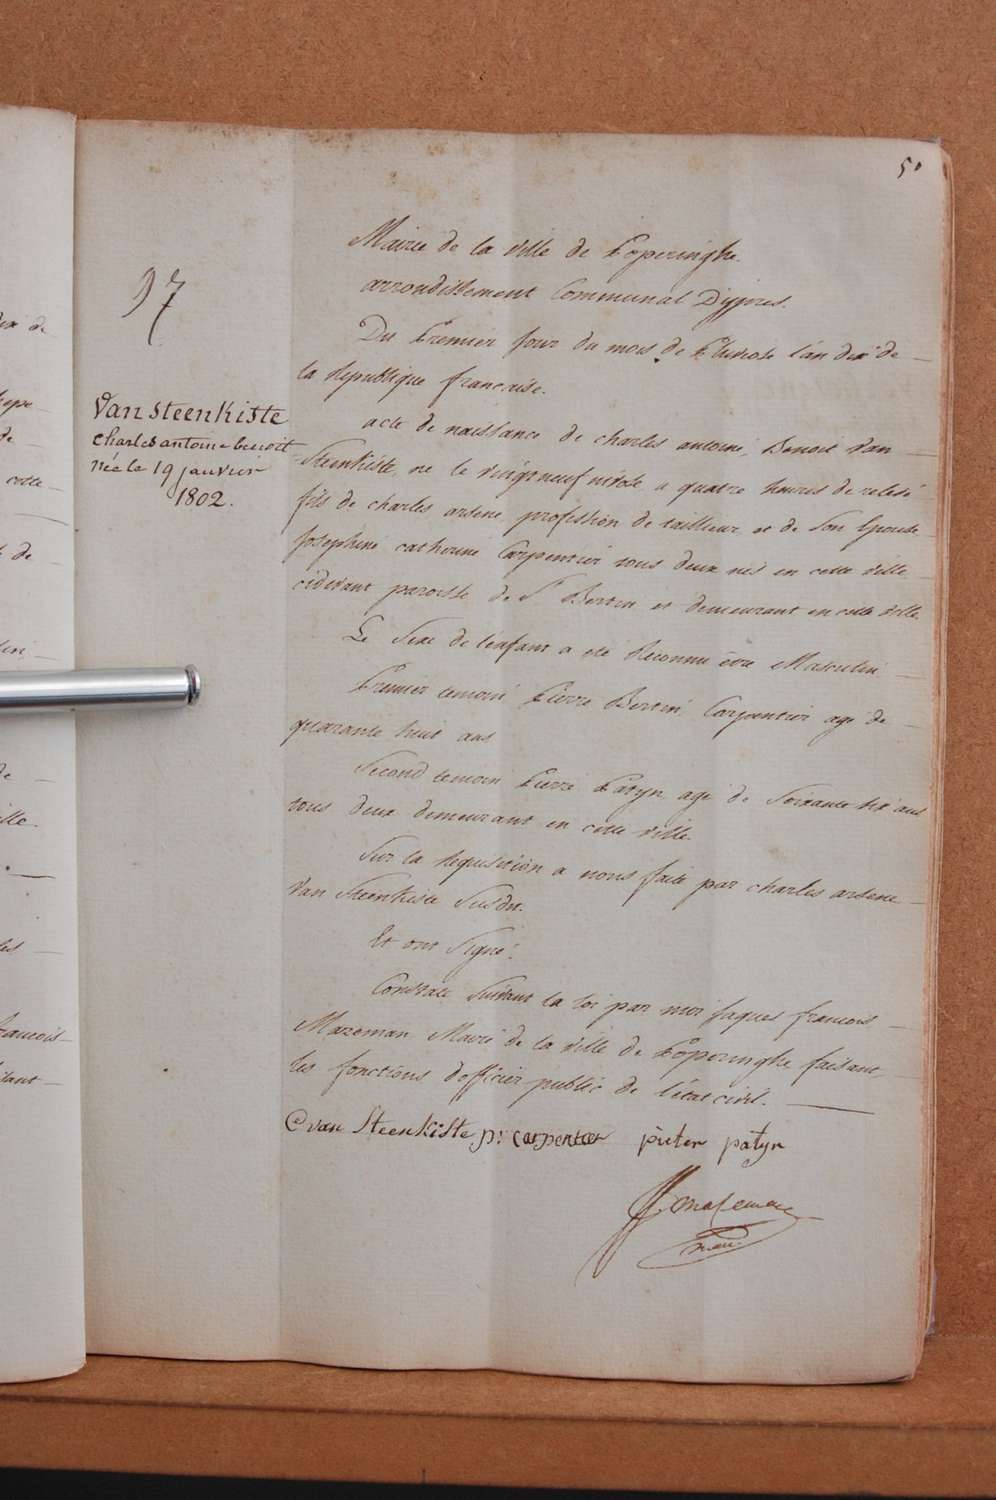 50
97
Van Steenkiste
charles antoine benoit
née le 19 janvier
1802.
Mairie de la ville de Poperinghe.
arrondissement Communal D'ypres.
Du Premier jour du mois de Pluviose l'an dix de
la Republique française.
acte de naissance de charles antoine, Benoit Van
Steenkiste, ne le vingt neuf nivose a quatre heures de relevé
fils de charles arsene profession de tailleur et de Son Epouse
Josephine catherine Carpentier tous deux nés en cette ville
cidevant paroisse de St Bertin et demeurant en cette ville
Le Sexe de l'enfant a été Reconnu être Masculin
Premier temoin Pierre Bertin Carpentier age de
quarante huit ans
Second temoin Pierre Patyn agé de Soixante six ans
tous deux demeurant en cette ville.
Sur la Requisition a nous faite par charles arsene
Van Steenkiste Susdit.
Et ont Signé.
Constaté Suivant la loi par moi jaques francois
Mazeman Maire de la ville de Poperinghe faisant
les fonctions d'officier public de l'état civil.
C van Steenkiste p: carpentier pieter patyn
Mazeman